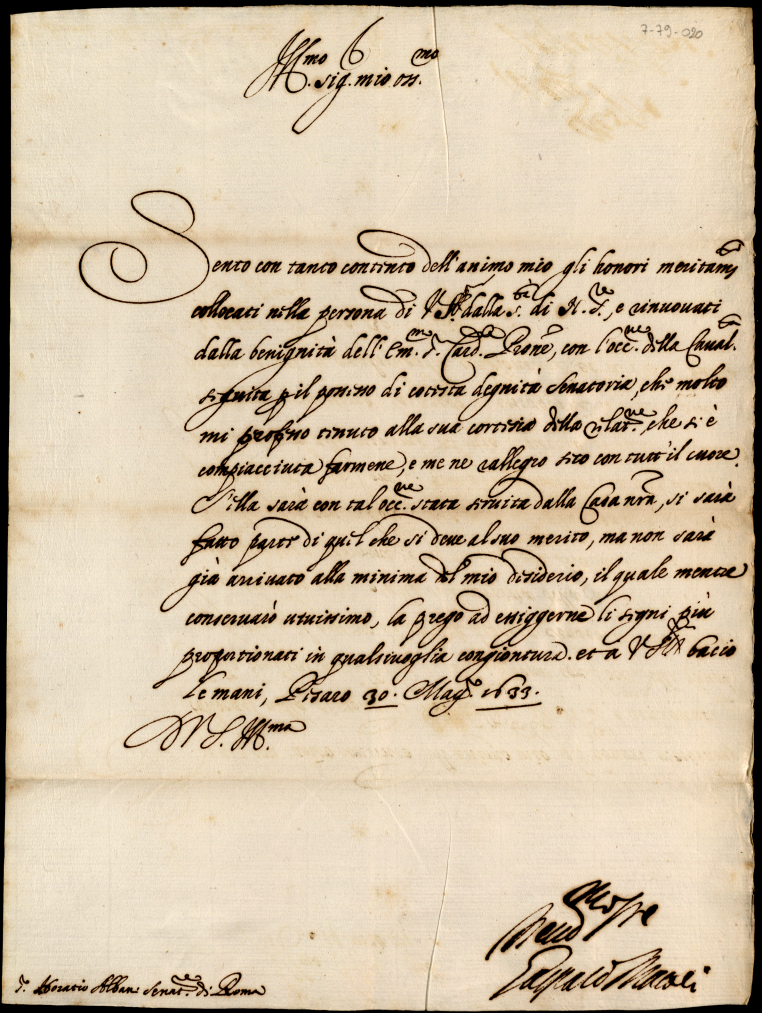 7-79-020
Ill.mo sig. mio oss.mo
Sento con tanto contento dell'animo mio gli honori meritam.te
collocati nella persona di V.S. Ill. dalla S.tà di N. S.re, e rinuovati
dalla benignità dell'Em.mo S. Card.le Prone, con l'occ.ne della Caval.ta
seguita p il possesso di cotesta degnità Senatoria, che molto
mi professo tenuto alla sua cortesia della relat.ne, che si è
compiacciuta farmene, e me ne rallegro seco con tutt'il cuore.
S'ella sarà con tal occ.ne stata servita dalla Casa nra, si sarà
fatto parte di quel che si deve al suo merito, ma non sarà
già arrivato alla minima del mio desiderio, il quale mentre
conservarò vivissimo, la prego ad essiggerne li segni più
proportionati in qualsivoglia congiontura. et a V.S. Ill. bacio
le mani, Pesaro 30. Mag.o 1633.
D V. S. Ill.ma
S. Horatio Alban senat.re di Roma